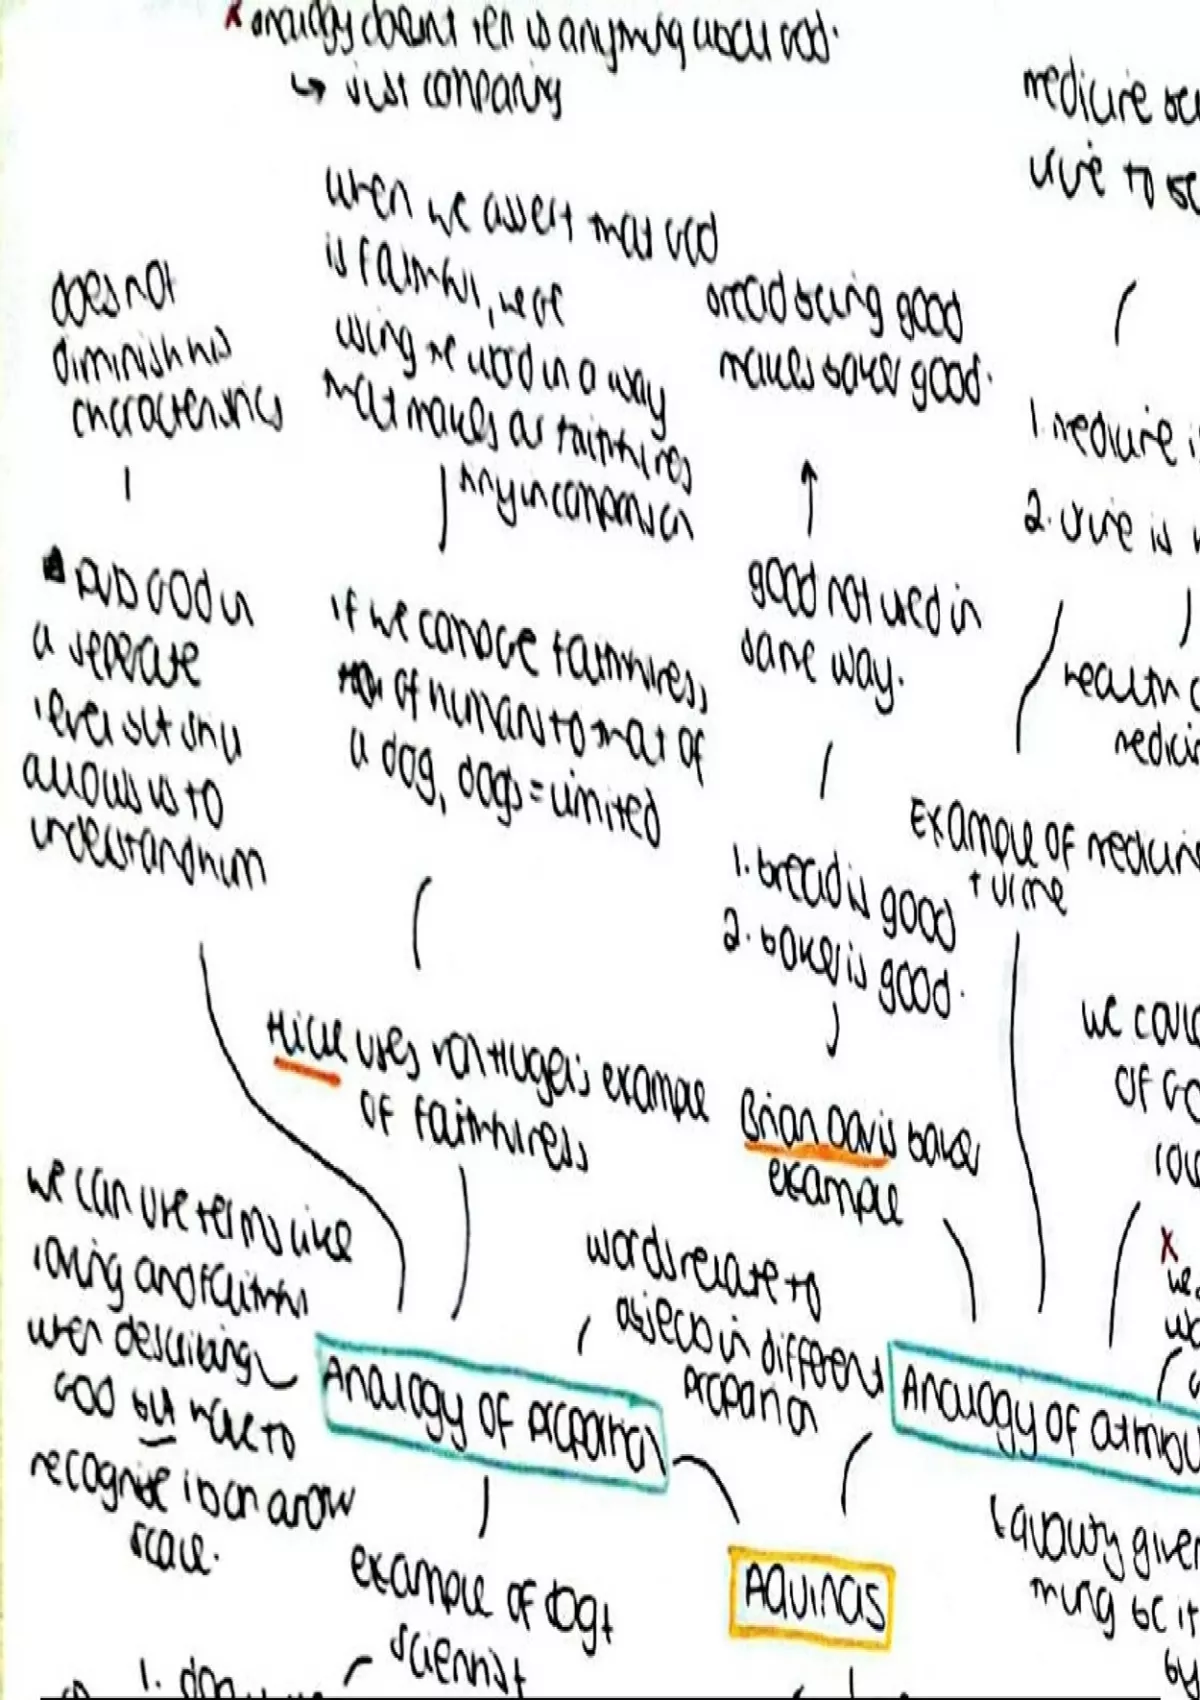 x analogy doesnt tell us anything about God.
↳ just comparing
when we assert that God
is faithful, were
using the word in a way
that makes our faithfulness
tiny in comparison
does not
diminish his
characteristics
puts God in
a seperate
level but still
allows us to
understand him
if we compare faithfulness
of humans to that of
a dog, dogs = limited
Hick uses Von Hugel's example
of faithfulness
bread being good
makes baker good.
good not used in
same way.
1. bread is good
2. baker is good.
Brian Davis baker
example
medicine
urine to
1. medicine
2. urine is
health
Example of medicine
+ urine
we could
of
x
we can use terms like
loving and faithful
when describing
God but have to
recognise its on a low
scale.
Analogy of proportion
words relate to
objects in different
proportion
Analogy of
AQUINAS
↳ quality given
thing
by
example of dog +
scientist
1. dog